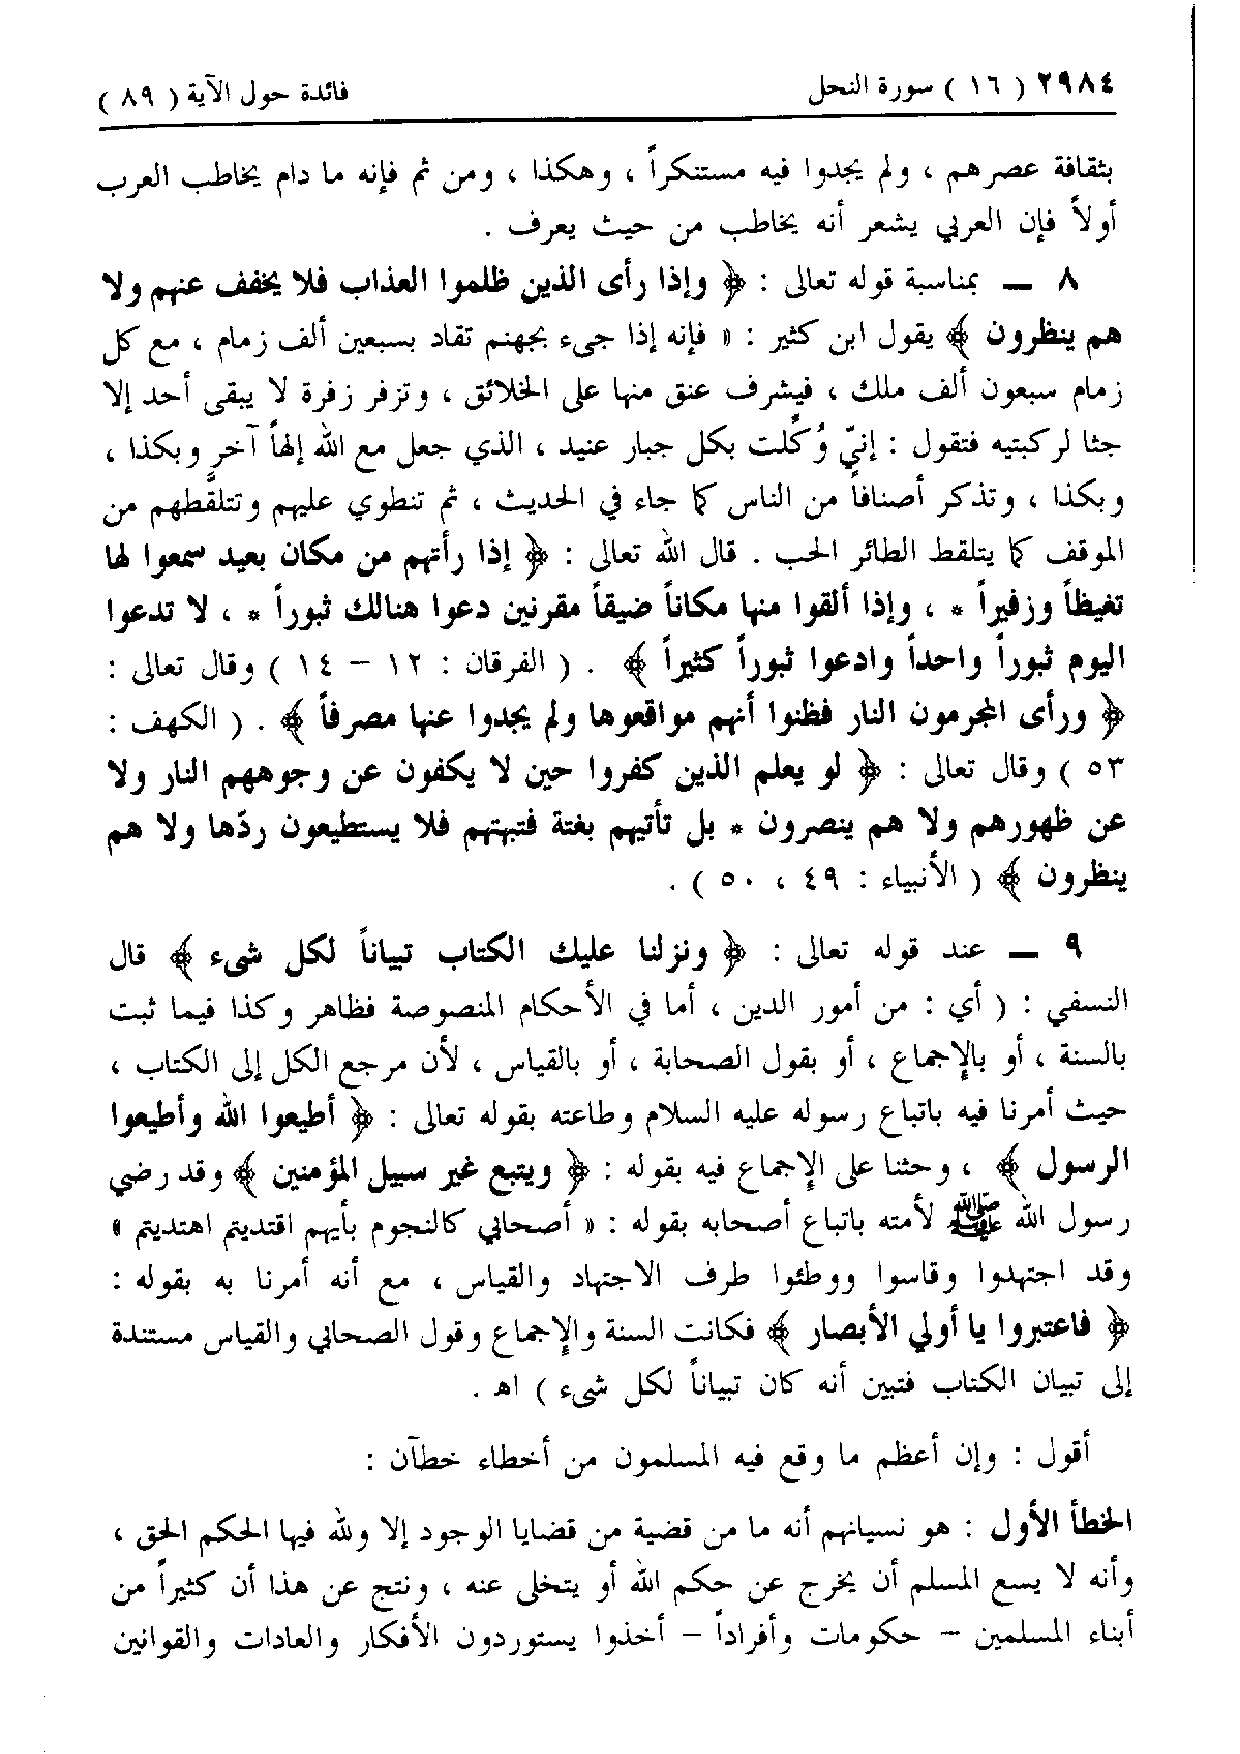 ٢٩٨٤ ( ١٦ ) سورة النحل فائدة حول الآية ( ٨٩ )
بثقافة عصرهم ، ولم يجدوا فيه مستنكراً ، وهكذا ، ومن ثم فإنه ما دام يخاطب العرب
أولاً فإن العربي يشعر أنه يخاطب من حيث يعرف .
٨ ــ بمناسبة قوله تعالى : ﴿ وإذا رأى الذين ظلموا العذاب فلا يخفف عنهم ولا
هم ينظرون ﴾ يقول ابن كثير : « فإنه إذا جيء بجهنم تقاد بسبعين ألف زمام ، مع كل
زمام سبعون ألف ملك ، فيشرف عنق منها على الخلائق ، وتزفر زفرة لا يبقى أحد إلا
جثا لركبتيه فتقول : إنيّ وُكِّلت بكل جبار عنيد ، الذي جعل مع الله إلهاً آخر وبكذا ،
وبكذا ، وتذكر أصنافاً من الناس كما جاء في الحديث ، ثم تنطوي عليهم وتتلقَّطهم من
الموقف كما يتلقط الطائر الحب . قال الله تعالى : ﴿ إذا رأتهم من مكان بعيد سمعوا لها
تغيظاً وزفيراً * ، وإذا ألقوا منها مكاناً ضيقاً مقرنين دعوا هنالك ثبوراً * ، لا تدعوا
اليوم ثبوراً واحداً وادعوا ثبوراً كثيراً ﴾ . ( الفرقان : ١٢ – ١٤ ) وقال تعالى :
﴿ ورأى المجرمون النار فظنوا أنهم مواقعوها ولم يجدوا عنها مصرفاً ﴾ . ( الكهف :
٥٣ ) وقال تعالى : ﴿ لو يعلم الذين كفروا حين لا يكفون عن وجوههم النار ولا
عن ظهورهم ولا هم ينصرون * بل تأتيهم بغتة فتبهتهم فلا يستطيعون ردّها ولا هم
ينظرون ﴾ ( الأنبياء : ٤٩ ، ٥٠ ) .
٩ ــ عند قوله تعالى : ﴿ ونزلنا عليك الكتاب تبياناً لكل شيء ﴾ قال
النسفي : ( أي : من أمور الدين ، أما في الأحكام المنصوصة فظاهر وكذا فيما ثبت
بالسنة ، أو بالإجماع ، أو بقول الصحابة ، أو بالقياس ، لأن مرجع الكل إلى الكتاب ،
حيث أمرنا فيه باتباع رسوله عليه السلام وطاعته بقوله تعالى : ﴿ أطيعوا الله وأطيعوا
الرسول ﴾ ، وحثنا على الإجماع فيه بقوله : ﴿ ويتبع غير سبيل المؤمنين ﴾ وقد رضي
رسول الله ﷺ لأمته باتباع أصحابه بقوله : « أصحابي كالنجوم بأيهم اقتديتم اهتديتم »
وقد اجتهدوا وقاسوا ووطئوا طرف الاجتهاد والقياس ، مع أنه أمرنا به بقوله :
﴿ فاعتبروا يا أولي الأبصار ﴾ فكانت السنة والإجماع وقول الصحابي والقياس مستندة
إلى تبيان الكتاب فتبين أنه كان تبياناً لكل شيء ) اهـ .
أقول : وإن أعظم ما وقع فيه المسلمون من أخطاء خطآن :
الخطأ الأول : هو نسيانهم أنه ما من قضية من قضايا الوجود إلا ولله فيها الحكم الحق ،
وأنه لا يسع المسلم أن يخرج عن حكم الله أو يتخلى عنه ، ونتج عن هذا أن كثيراً من
أبناء المسلمين – حكومات وأفراداً – أخذوا يستوردون الأفكار والعادات والقوانين